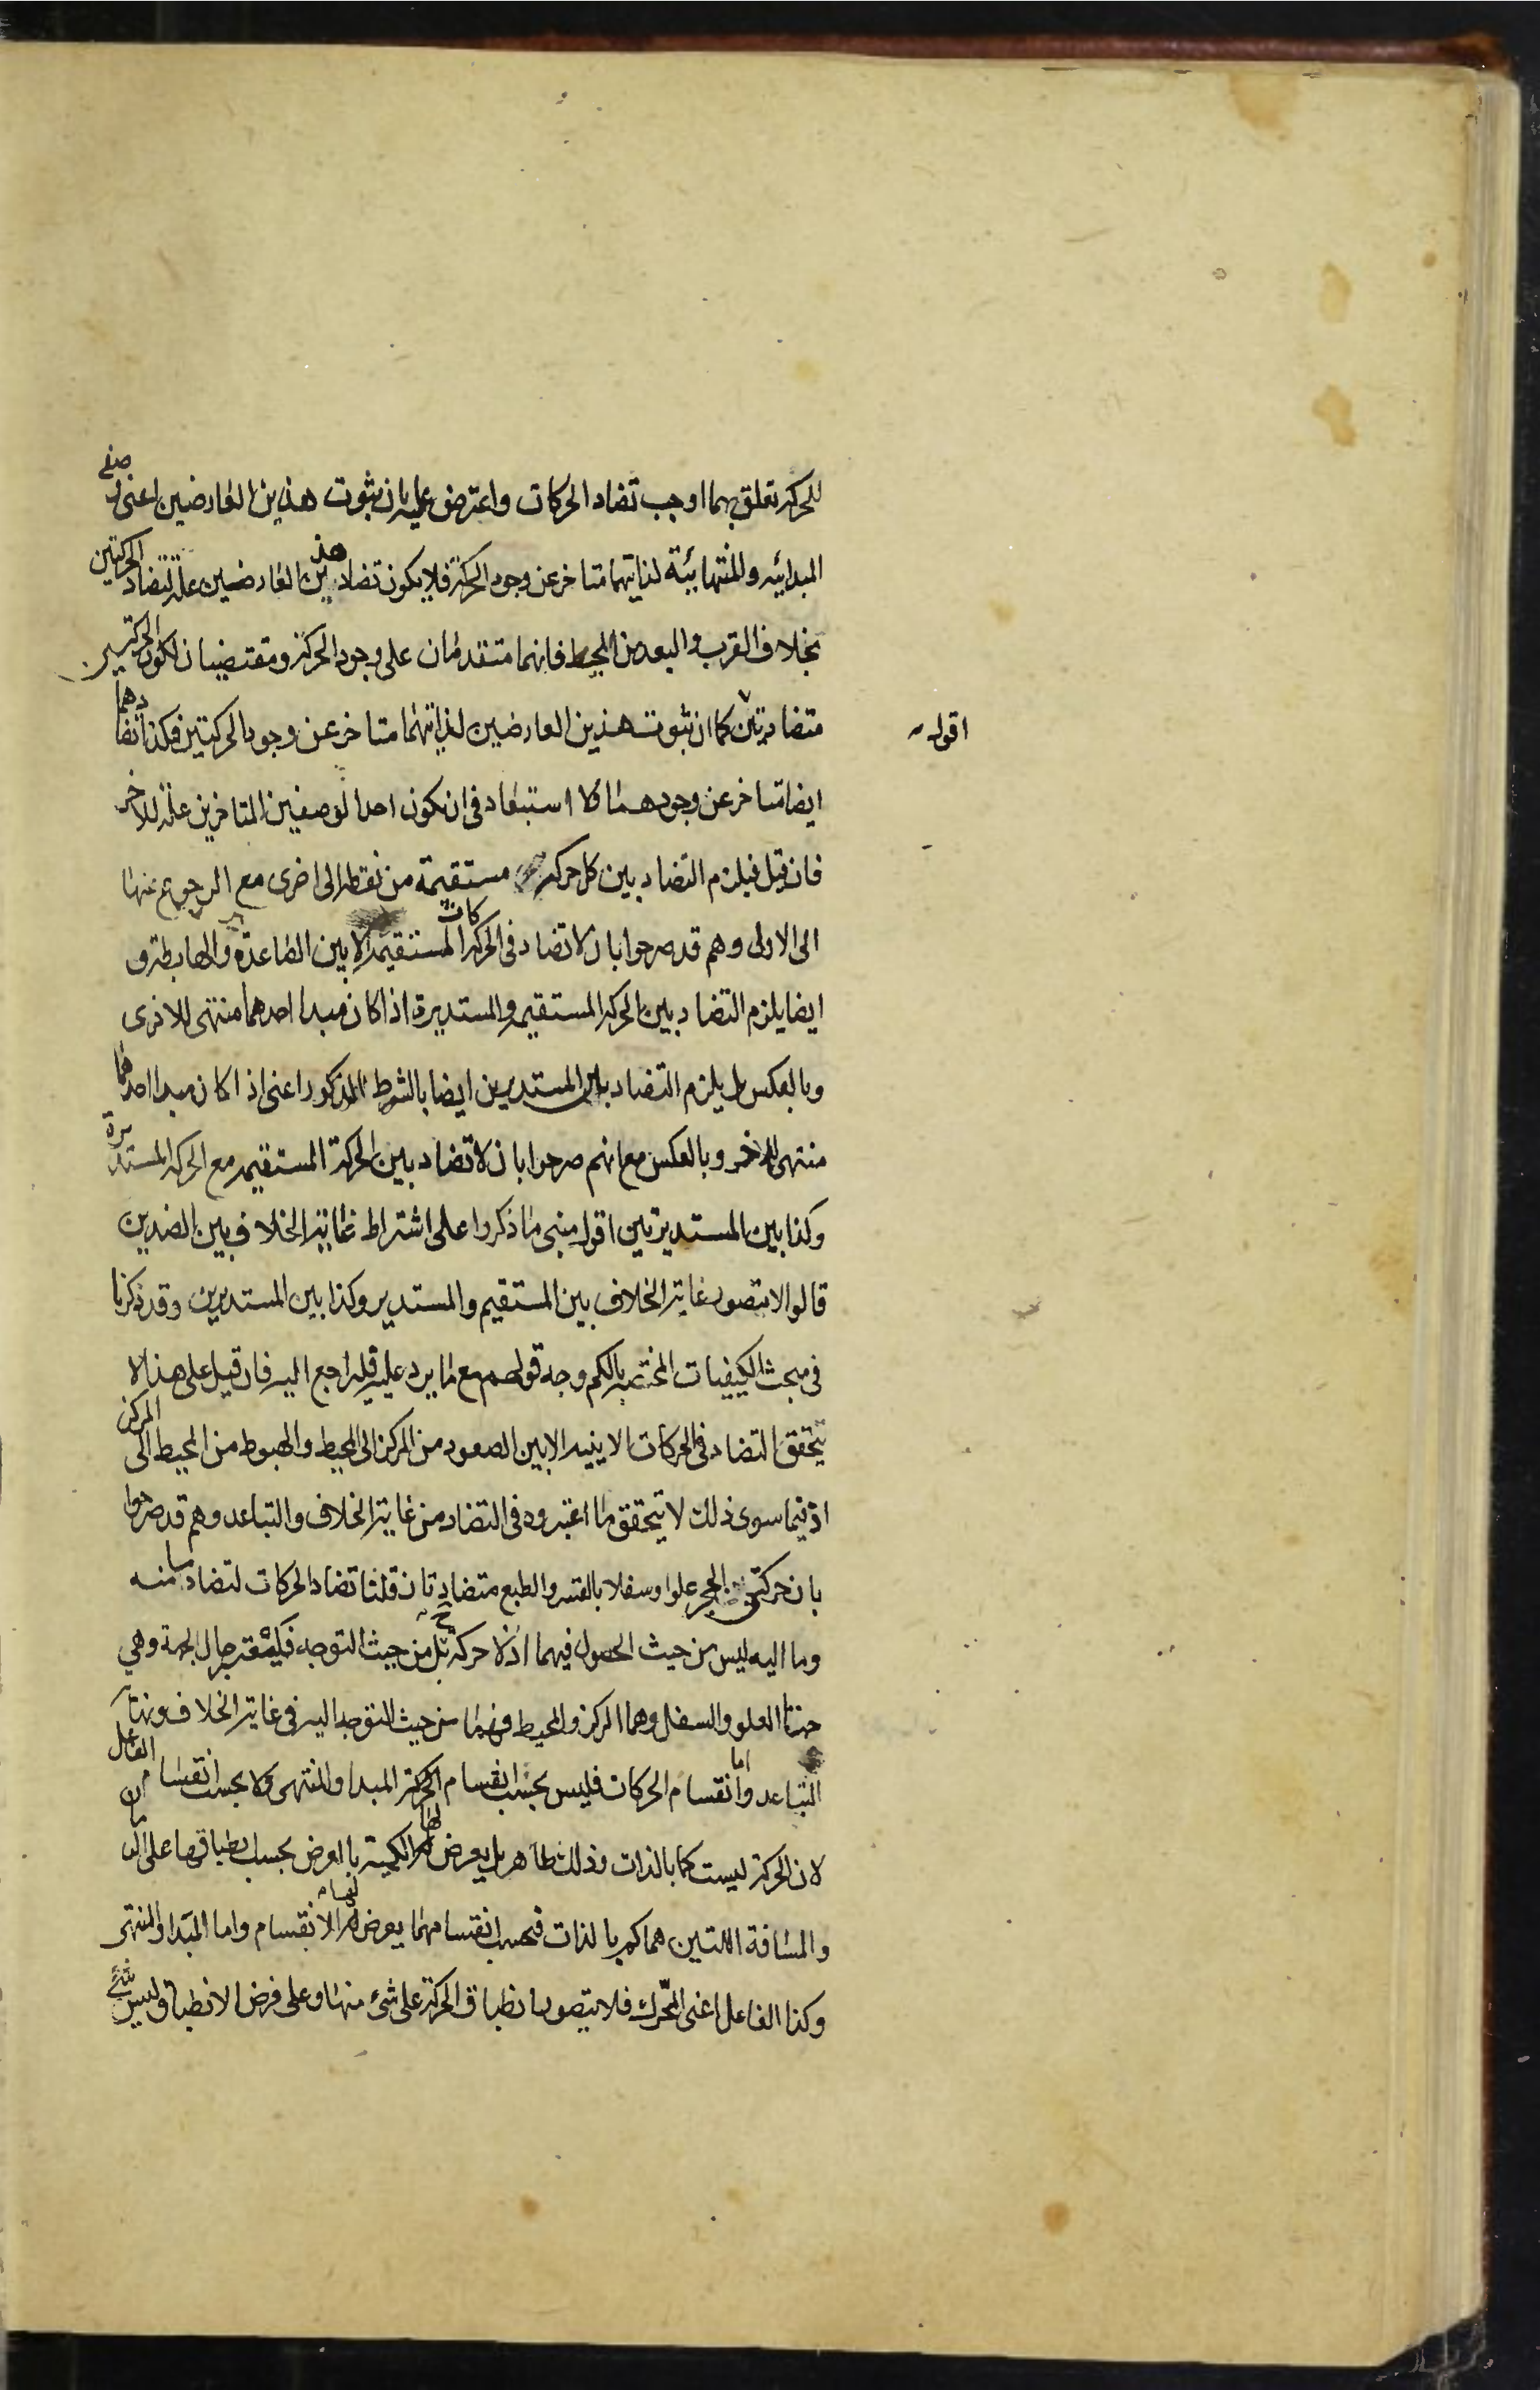 للحركة تعلق بهما اوجب تضاد الحركات واعترض عليه بان ثبوت هذين العارضين اعنى وصفى
المبدائيه والمنتهائية لذاتيهما متاخر عن وجود الحركة فلا يكون تضاد هذين العارضين علة لتضاد الحركتين
بخلاف القرب والبعد من المحيط فانهما متقدمان على وجود الحركة ومقتضيان لكون الحركتين
متضادتين كما ان ثبوت هذين العارضين لذاتيهما متاخر عن وجود الحركتين فكذا تضادهما
اقول
ايضا متاخر عن وجودهما ولا استبعاد فى ان يكون احد الوصفين المتاخرين علة للاخر
فان قيل فيلزم التضاد بين كل حركة مستقيمة من نقطه الى اخرى مع الرجوع عنها
الى الاولى وهم قد صرحوا بان لا تضاد فى الحركات المستقيمة الا بين الصاعدة والهابطة و
ايضا يلزم التضاد بين الحركة المستقيمه والمستديرة اذا كان مبدا احدهما منتهى للاخرى
وبالعكس بل يلزم التضاد بين المستديرين ايضا بالشرط المذكور اعنى اذا كان مبدا احدهما
منتهى للاخر وبالعكس مع انهم صرحوا بان لا تضاد بين الحركة المستقيمه مع الحركة المستديرة
وكذا بين المستديرتين اقول مبنى ما ذكروا على اشتراط غاية الخلاف بين الضدين
قالوا لا يتصور غاية الخلاف بين المستقيم والمستدير وكذا بين المستديرين وقد ذكرنا
فى مبحث الكيفيات المختصه بالكم وجه قولهم مع ما يرد عليه فليراجع اليه فان قيل على هذا لا
يتحقق التضاد فى الحركات الاينيه الا بين الصعود من المركز الى المحيط والهبوط من المحيط الى المركز
اذ فيما سوى ذلك لا يتحقق ما اعتبروه فى التضاد من غاية الخلاف والتباعد وهم قد صرحوا
بان حركتى الحجر علوا وسفلا بالقسر والطبع متضادتان قلنا تضاد الحركات لتضاد ما منه
وما اليه ليس من حيث الحصول فيهما اذ لا حركة ح بل من حيث التوجه فليعتبر حال الجهة وهي
جهتا العلو والسفل وهما المركز والمحيط فهما من حيث التوجه اليه فى غاية الخلاف ونهاية
التباعد واما انقسام الحركات فليس بحسب انقسام الحركة المبدا والمنتهى ولا بحسب انقسام الفاعل
لان الحركة ليست كما بالذات وذلك ظاهر بل يعرض لها الكمية بالعرض بحسب انطباقها على الزمان
والمسافة اللتين هما كم بالذات فبحسب انقسامهما يعرض لها الانقسام واما المبدا والمنتهى
وكذا الفاعل اعنى المحرك فلا يتصور انطباق الحركة على شئ منها وعلى فرض الانطباق وليس شئ